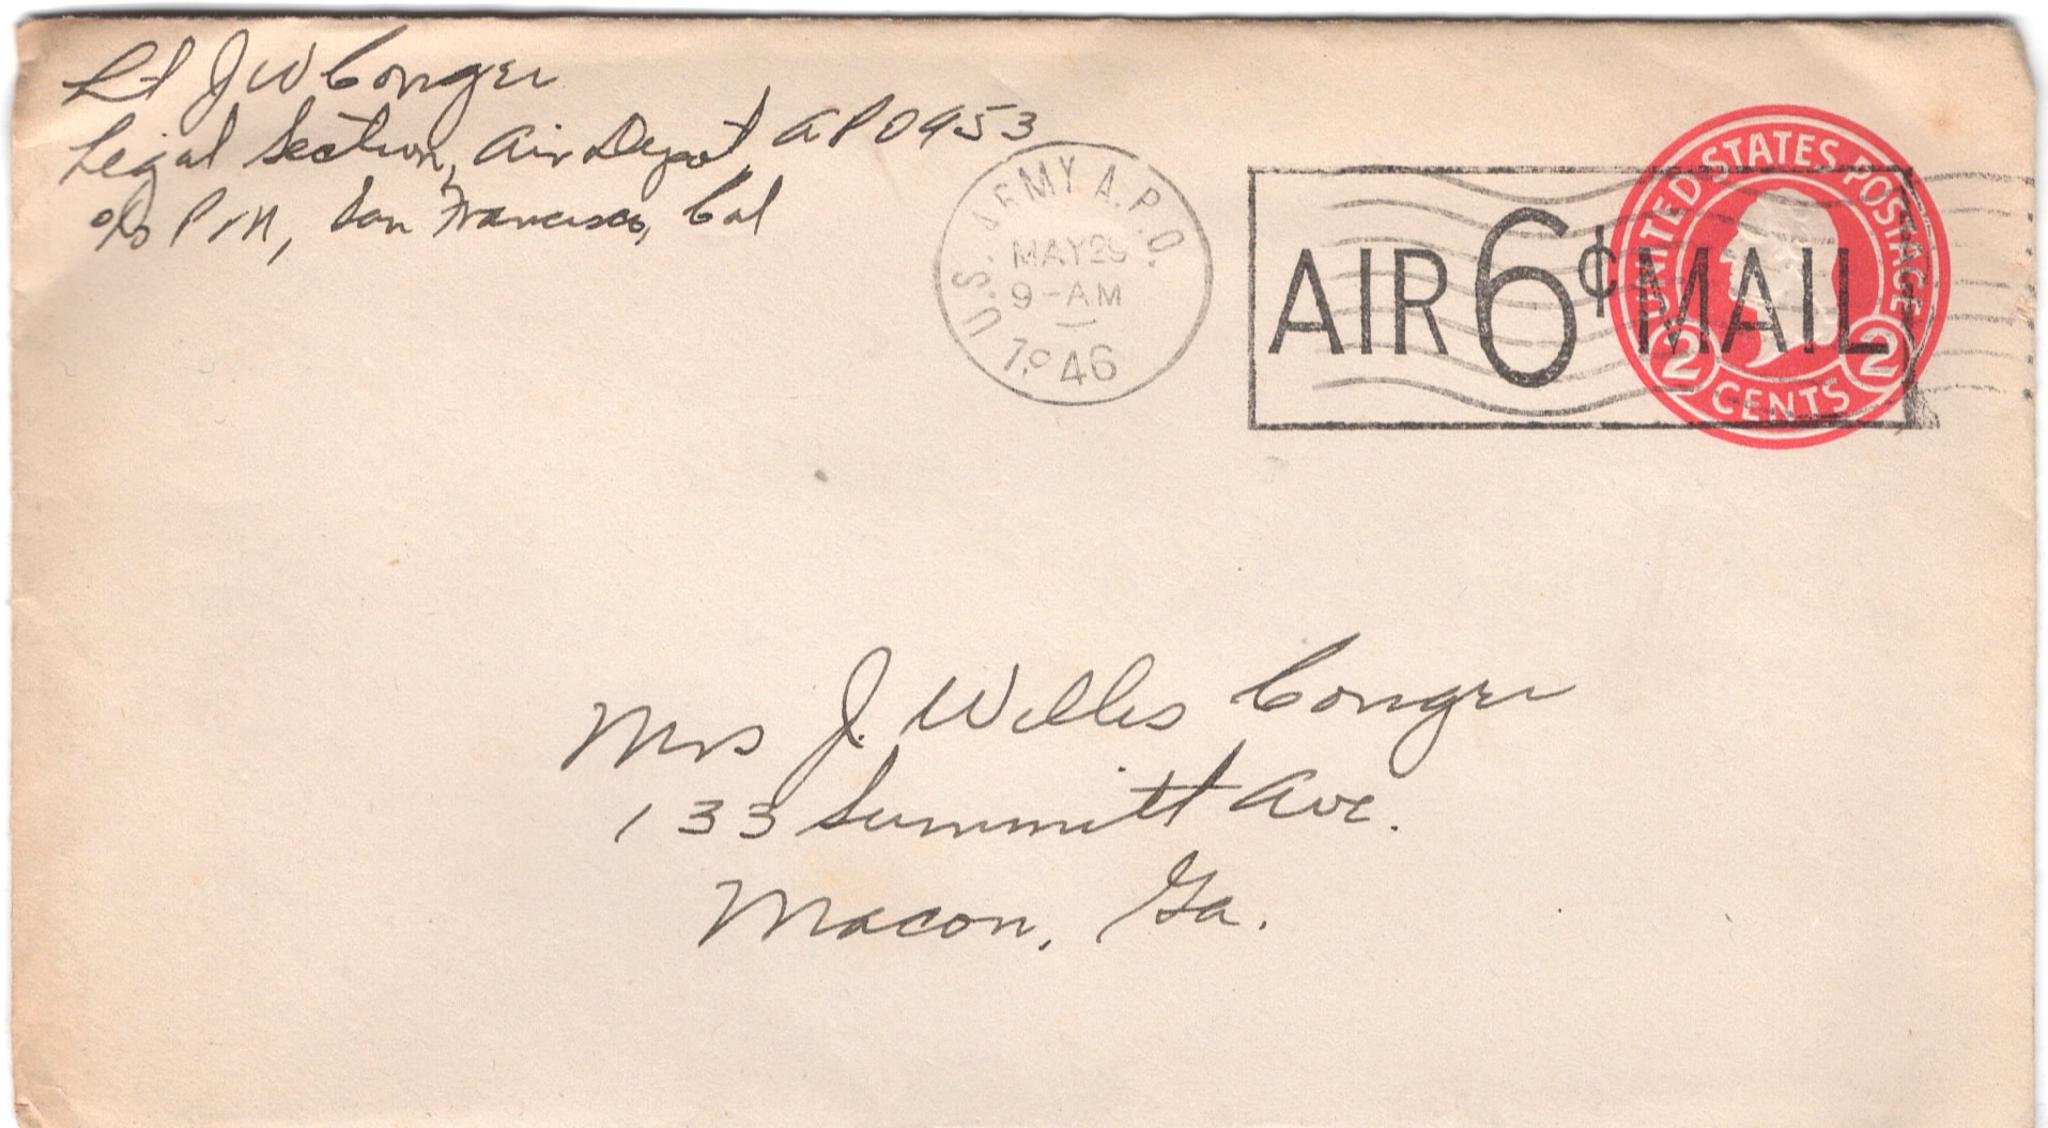 Lt J W Conger
Legal Section, Air Depot, APO 953
c/o P M, San Francisco, Cal
U.S. ARMY A.P.O.
MAY 29
9-AM
1946
AIR 6¢ MAIL
UNITED STATES POSTAGE
2 CENTS 2
Mrs J. Willis Conger
133 Summitt Ave.
Macon, Ga.